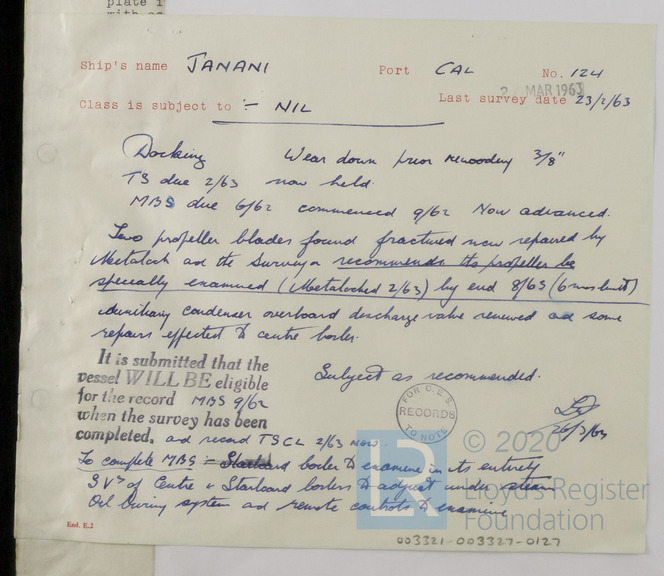 plate i
Ship's name JANANI Port CAL No. 124
2 MAR 1963
Class is subject to :- NIL Last survey date 23/2/63
Docking Wear down prior rewooding 3/8"
TS due 2/63 now held.
MBS due 6/62 commenced 9/62 Now advanced.
Two propeller blades found fractured now repaired by
Metalock and the Surveyor recommends the propeller be
specially examined (Metalocked 2/63) by end 8/63 (6 mos limit)
Auxiliary condenser overboard discharge valve renewed and some
repairs effected to centre boiler.
It is submitted that the
vessel WILL BE eligible
for the record MBS 9/62
when the survey has been
completed. and record TSCL 2/63 now.
Subject as recommended.
FOR C.E.S.
RECORDS
TO NOTE
26/3/63
To complete MBS :- Starboard boiler to examine in its entirety
SVs of Centre & Starboard boilers to adjust under steam
Oil burning system and remote controls to examine
End. E.2
© 2020
Lloyd's Register
Foundation
003321-003327-0127